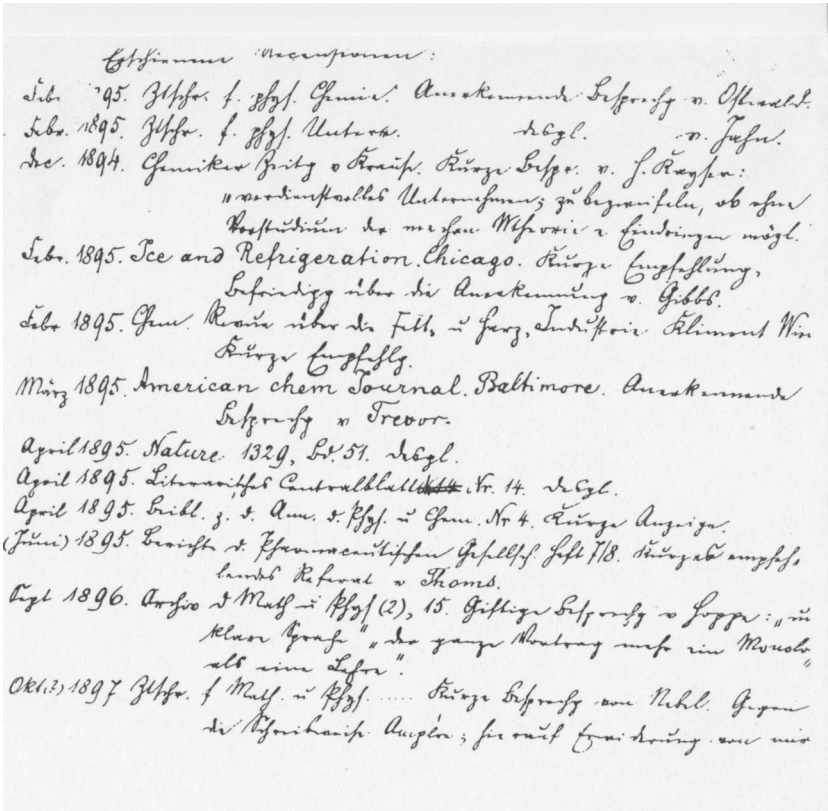 Erschienene Recensionen:
Febr. 95. Ztschr. f. phys. Chemie. Anerkennende Besprechg v. Ostwald.
Febr. 1895. Ztschr. f. phys. Unterr. desgl. v. Jahn.
Dec. 1894. Chemiker Zeitg v Krause. Kurze Bespr. v. H. Kayser:
„verdienstvolles Unternehmen; zu bezweifeln, ob ohne
Vorstudium der mechan Wtheorie e Eindringen mögl.
Febr. 1895. Ice and Refrigeration. Chicago. Kurze Empfehlung,
Befriedigg über die Anerkennung v. Gibbs.
Febr 1895. Chem. Revue über die Fett- u Harz-Industrie. Kliment Wien
Kurze Empfehlg.
März 1895. American chem Journal. Baltimore. Anerkennende
Besprechg v Trevor.
April 1895. Nature 1329, Bd. 51. desgl.
April 1895. Literarisches Centralblatt Nr. 14. desgl.
April 1895. Beibl. z. d. Ann. d. Phys. u Chem. Nr 4. Kurze Anzeige.
(Juni) 1895. Berichte d. Pharmaceutischen Gesellsch. Heft 7/8. Kurzes empfeh-
lendes Referat v Thoms.
Sept 1896. Archiv d Math u Phys (2), 15. Giftige Besprechg v Hoppe: „un
klare Sprache" „der ganze Vortrag mehr ein Monolo
als eine Lehre".
Okt.(?) 1897 Ztschr. f Math. u Phys. ..... Kurze Besprechg von Nebel. Gegen
die Schreibweise Ampère; hierauf Erwiderung von mir